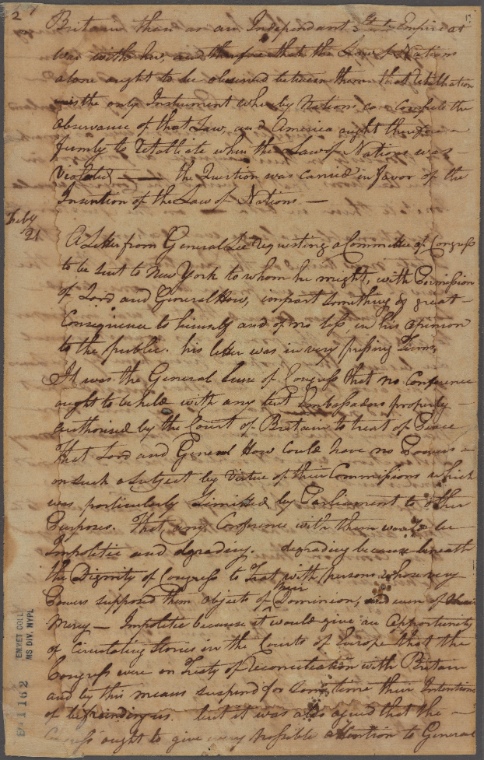 2
Britain than as an Independant State Empire at
War with her, and therefore that the Law of Nations
alone ought to be observed between them that retaliation
is the only Instrument whereby Nations can compel the
observance of that Law, and America ought therefore
firmly to retaliate when the Law of Nations was
Violated — the Question was carried in favor of the
Insertion of the Law of Nations. —
Feby
21
A Letter from General Lee requesting a Committee of Congress
to be sent to New York to whom he might, with Permission
of Lord and General How, impart something of great
Consequence to himself and of no less in his opinion
to the public. his letter was in very pressing Terms
It was the General Sense of Congress that no Conference
ought to be held with any but Embassadors properly
authorised by the Court of Britain to treat of Peace
That Lord and General How could have no Powers
on such a Subject by Virtue of their Commissions which
was particularly Limitted by Parliament to other
Purposes. That any Conference with them would be
Impolitic and degrading. degrading because beneath
the Dignity of Congress to Treat with persons whose very
Powers supposed them objects of Dominion, and even of
Mercy — Impolitic because it would give an Opportunity
of Circulating Stories in the Courts of Europe that the
Congress were on Treaty of reconciliation with Britain
and by this means suspend for some time their Intentions
of befriending us. but it was also agreed that the
Congress ought to give every possible attention to General
EMMET COLL
MS DIV. NYPL
1162